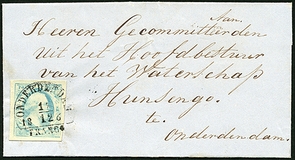 Aan.
Heeren Gecommitteerden
uit het Hoofdbestuur
van het Waterschap
Hunsingo.
te.
Onderdendam.
ONDERDEND
12
12 6
FRANCO